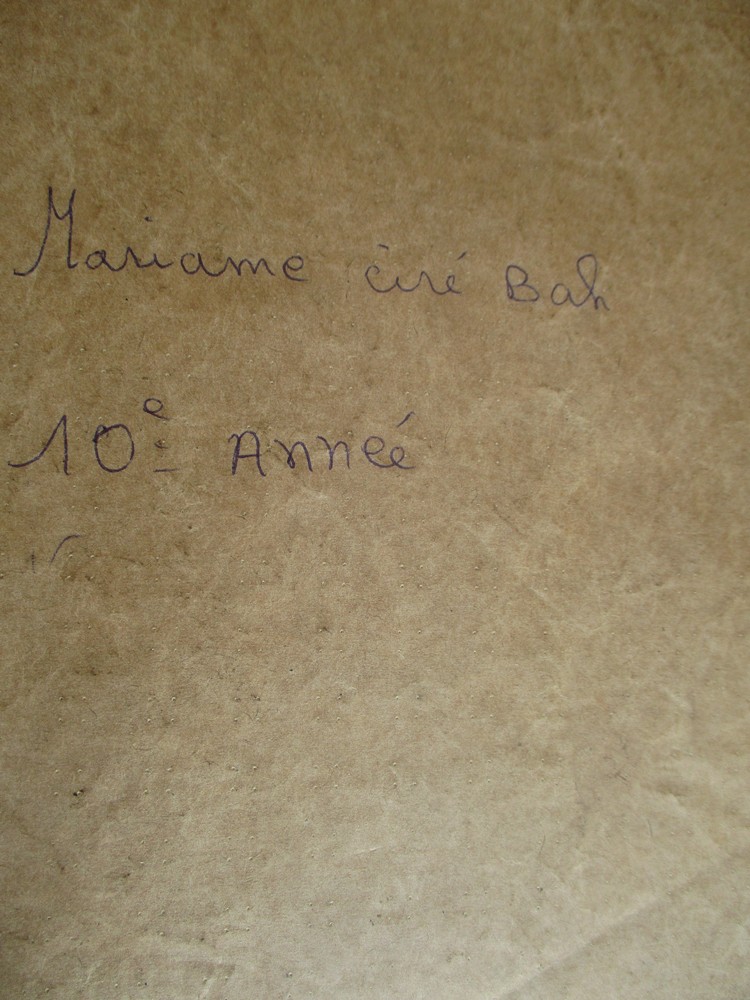 Mariame ciré Bah
10e Année